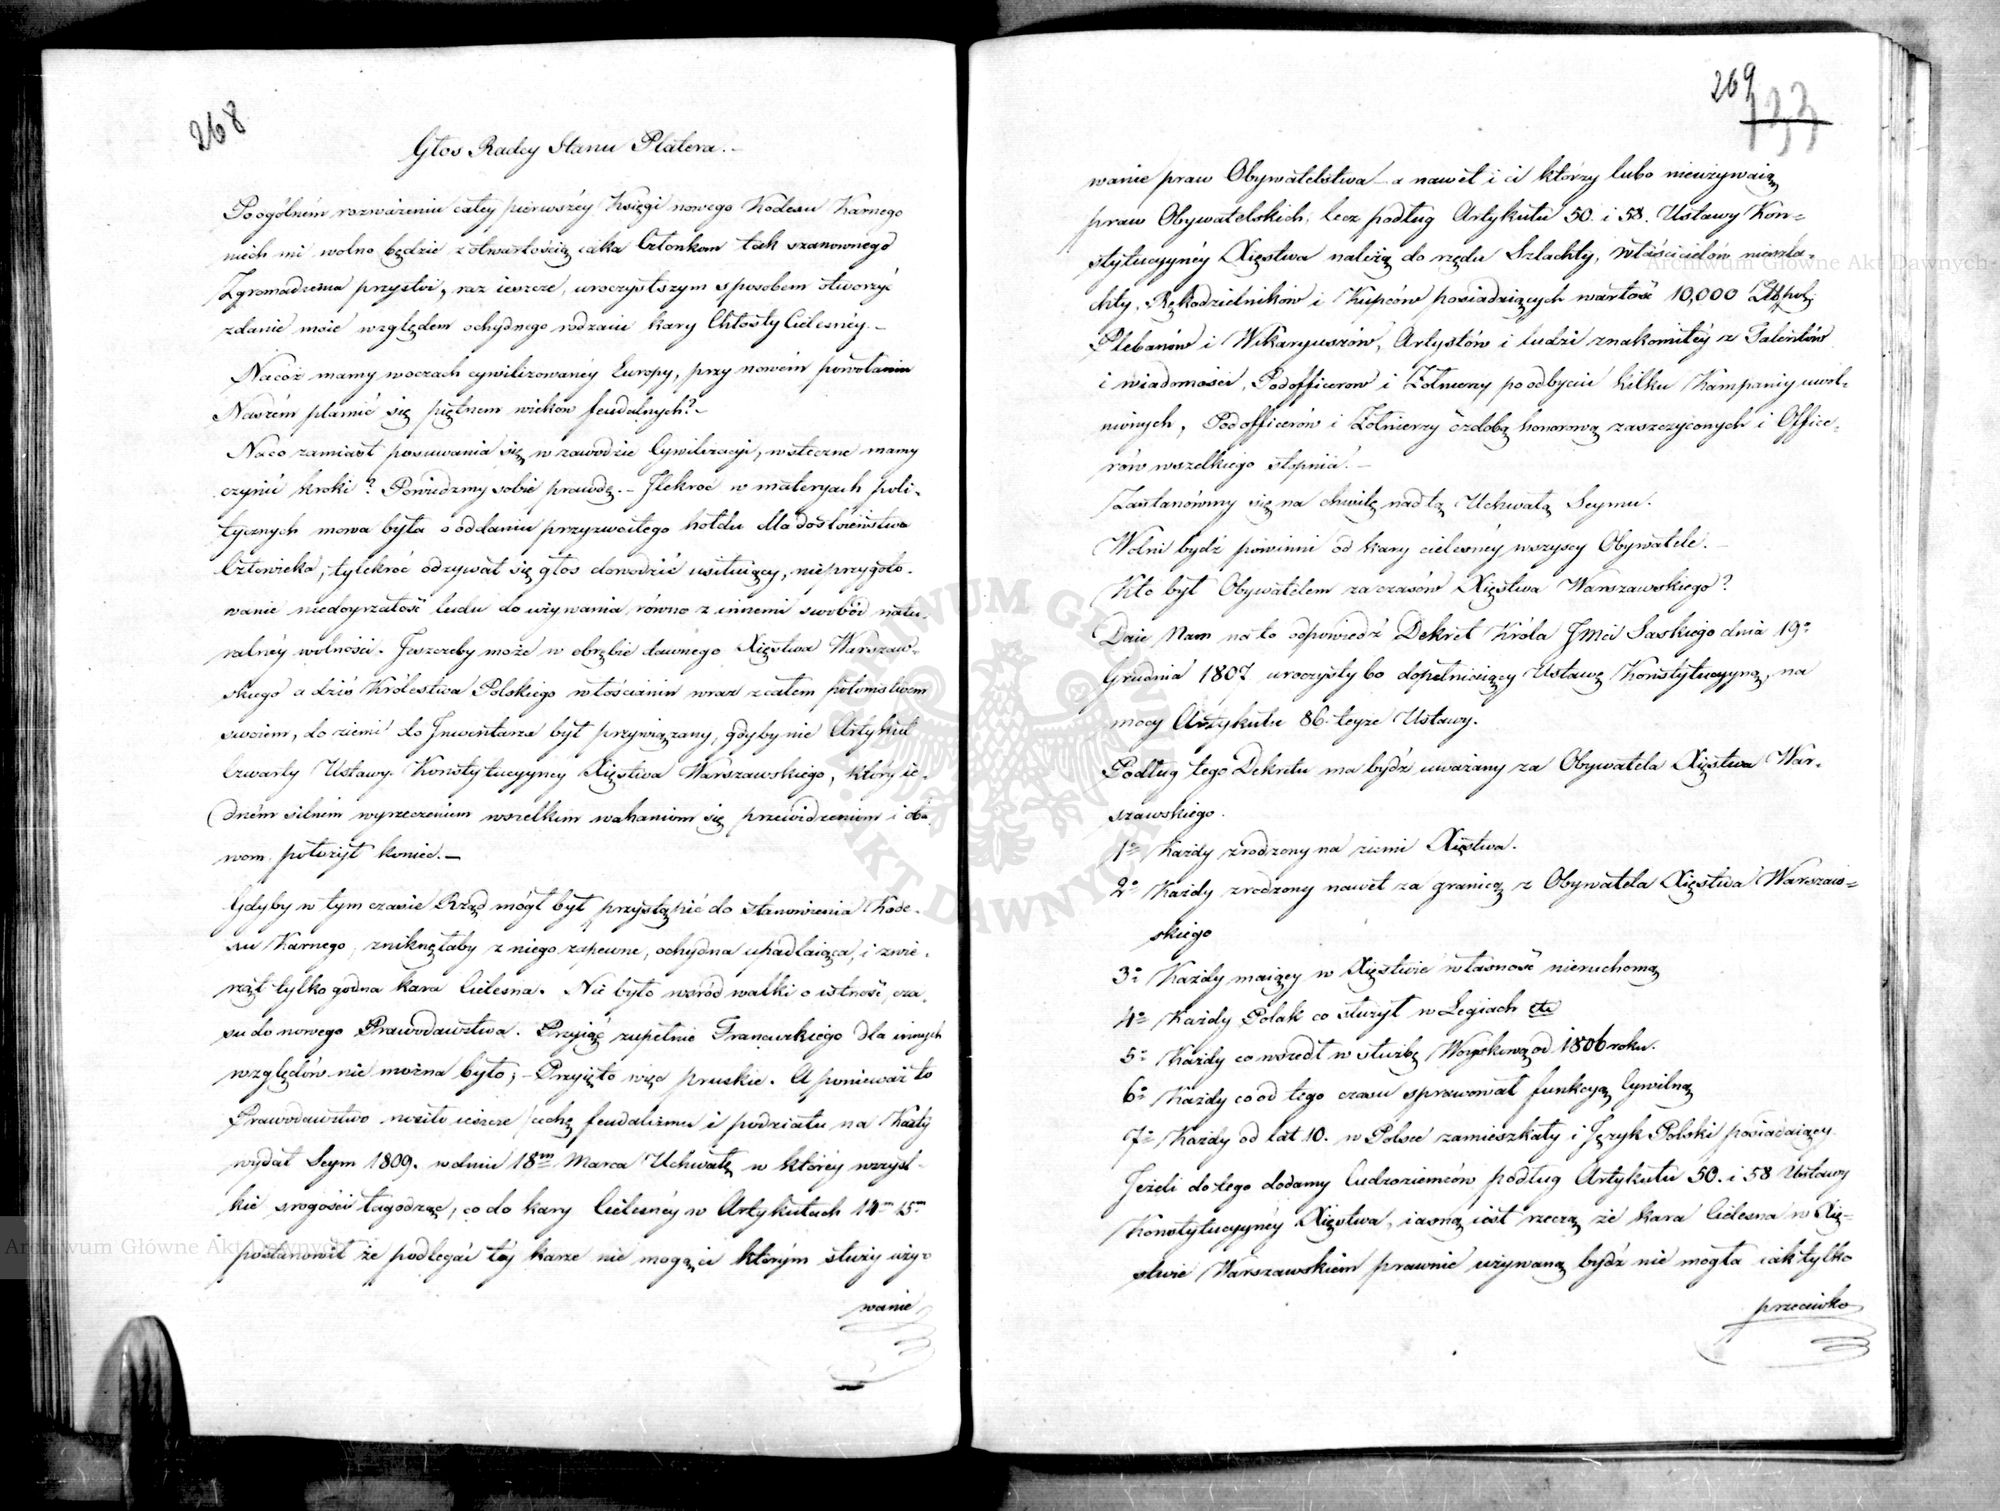 268
Głos Radcy Stanu Platera. –
Po ogólném rozważeniu całey pierwszéy Księgi nowego Kodexu Karnego
niech mi wolno będzie z otwartością iaka Członkom tak szanownego
Zgromadzenia przystoi, raz ieszcze, uroczystszym sposobem otworzyć
zdanie moie względem ochydnego rodzaiu kary Chłosty Cielesnéy. –
Nacóż mamy w oczach cywilizowanéy Europy, przy nowém powołaniu
Naszém plamić się piętnem wieków feudalnych? –
Naco zamiast posuwania się w zawodzie Cywilizacyi, wsteczne mamy
czynić kroki? Powiedzmy sobie prawdę. – Ilekroć w materyach poli-
tycznych mowa była o oddaniu przyzwoitego hołdu dla dostoieństwa
Człowieka, tylekroć odzywał się głos dowodzić usiłuiący, nieprzygoto-
wanie niedoyrzałość ludu do używania równo z innemi swobód natu-
ralnéy wolności. Jeszczeby może w obrębie dawnego Xięstwa Warszaw-
skiego a dziś Królestwa Polskiego włościanin wraz z całem potomstwem
swoiem, do ziemi do Inwentarza był przywiązany, gdyby nie Artykuł
Czwarty Ustawy Konstytucyynéy Xięstwa Warszawskiego, który ie-
dném silnem wyrzeczeniem wszelkim wahaniom się przewidzeniom i oba-
wom położył koniec. –
Gdyby w tym czasie Rząd mógł był przystąpić do stanowienia Kode-
xu Karnego, zniknęłaby z niego zapewne, ochydna upadlaiąca, i zwie-
rząt tylko godna kara Cielesna. Nie było wsród walki o istność, cza-
su do nowego Prawodawstwa. Przyiąć zupełnie Francuzkiego dla innych
względów nie można było; – Przyięto więc pruskie. A ponieważ to
Prawodawstwo nosiło ieszcze cechę feudalizmu i podziału na Kasty
wydał Seym 1809. w dniu 18m Marca Uchwałę w któréy wszyst-
kie srogości łagodząc, co do kary Cielesnéy w Artykułach 14m 15m
postanowił że podlegać téy karze nie mogą ci którym służy uży-
wanie
269
133
wanie praw Obywatelstwa – a nawet i ci którzy lubo nieużywaią
praw Obywatelskich, lecz podług Artykułu 50. i 58. Ustawy Kon-
stytucyynéy Xięstwa należą do rzędu Szlachty, właścicielów nieszla-
chty, Rękodzielników i Kupców posiadaiących wartość 10,000 Złł pol:
Plebanów i Wikaryuszów, Artystów i ludzi znakomitéy z Talentów
i wiadomości, Podofficerow i Żołnierzy po odbyciu kilku Kampaniy uwol-
nionych, Podofficerów i Żołnierzy ozdobą honorową zaszczyconych i Office-
rów wszelkiego stopnia. –
Zastanówmy się na chwilę nad tą Uchwałą Seymu.
Wolni bydź powinni od kary cielesnéy wszyscy Obywatele. –
Kto był Obywatelem za czasów Xięstwa Warszawskiego?
Daie Nam na to odpowiedź Dekret Króla Jmci Saskiego dnia 19o
Grudnia 1807 uroczysty bo dopełniaiący Ustawę Konstytucyyną, na
mocy Artykułu 86. teyże Ustawy.
Podług tego Dekretu ma bydź uważany za Obywatela Xięstwa War-
szawskiego.
1o Każdy zrodzony na ziemi Xięstwa.
2o Każdy zrodzony nawet za granicą z Obywatela Xięstwa Warszaw-
skiego
3o Każdy maiący w Xięstwie własność nieruchomą
4o Każdy Polak co służył w Legiach etc
5o Każdy co wszedł w służbę Woyskową od 1806 roku.
6o Każdy co od tego czasu sprawował funkcyą Cywilną
7o Każdy od lat 10. w Polsce zamieszkały i Język Polski posiadaiący.
Jeżeli do tego dodamy Cudzoziemców podług Artykułu 50. i 58 Ustawy
Konstytucyynéy Xięstwa, iasną iest rzeczą że kara Cielesna w Xię-
stwie Warszawskiém prawnie używaną bydź nie mogła iak tylko
przeciwko
ARCHIWUM GŁÓWNE AKT DAWNYCH
Archiwum Główne Akt Dawnych
Archiwum Główne Akt Dawnych